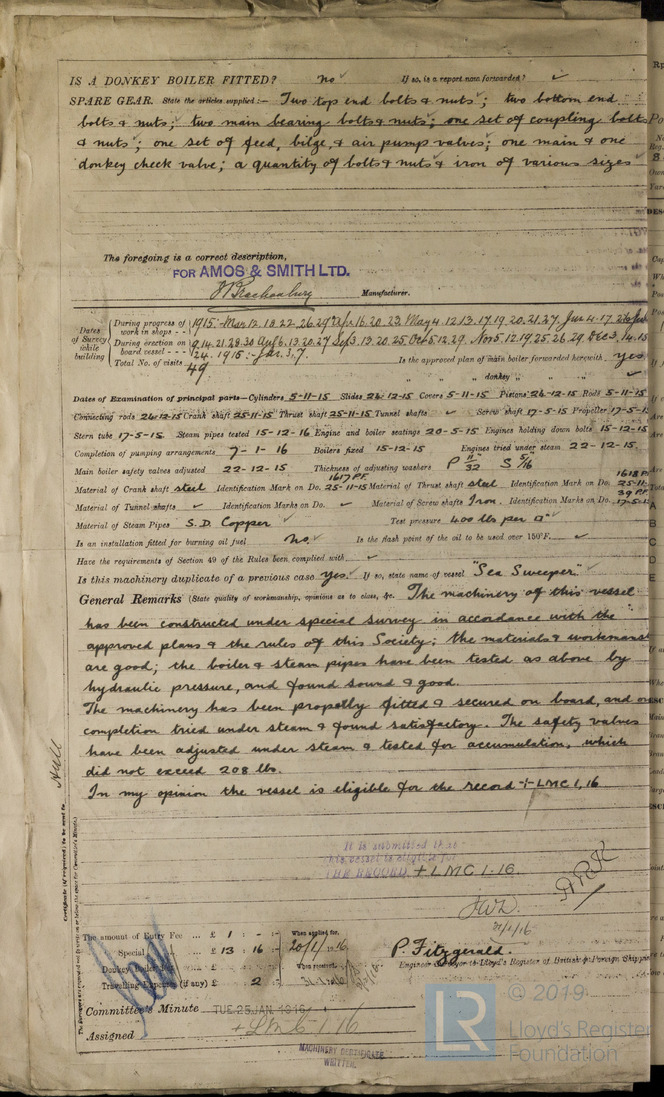 IS A DONKEY BOILER FITTED? no ✓ If so, is a report now forwarded? ✓
SPARE GEAR. State the articles supplied:— Two top end bolts & nuts; two bottom end
bolts & nuts; two main bearing bolts & nuts; one set of coupling bolts
& nuts; one set of feed, bilge, & air pump valves; one main & one
donkey check valve; a quantity of bolts & nuts & iron of various sizes
The foregoing is a correct description,
FOR AMOS & SMITH LTD.
Manufacturer.
Dates of Survey while building
During progress of work in shops - - 1915: Mar. 12. 18. 22. 26. 29. 16. 20. 23. May 4. 12. 13. 17. 19. 20. 21. 27. Jun 4. 17.
During erection on board vessel - - - 9. 14. 21. 28. 30. Aug 6. 13. 20. 27. Sep 3. 13. 20. 25. Oct 5. 12. 29. Nov 5. 12. 19. 25. 26. 29. Dec 3. 14. 15
24. 1915:- Jan. 3. 7.
Total No. of visits 49.
Is the approved plan of main boiler forwarded herewith yes
" " " donkey " " " ✓
Dates of Examination of principal parts—Cylinders 5-11-15 Slides 26-12-15 Covers 5-11-15 Pistons 26-12-15 Rods 5-11-15
Connecting rods 26-12-15 Crank shaft 25-11-15 Thrust shaft 25-11-15 Tunnel shafts ✓ Screw shaft 17-5-15 Propeller 17-5-15
Stern tube 17-5-15 Steam pipes tested 15-12-16 Engine and boiler seatings 20-5-15 Engines holding down bolts 15-12-15
Completion of pumping arrangements 7-1-16 Boilers fixed 15-12-15 Engines tried under steam 22-12-15.
Main boiler safety valves adjusted 22-12-15 Thickness of adjusting washers P 11/32 S 5/16
Material of Crank shaft steel Identification Mark on Do. 1617 P.F. 25-11-15 Material of Thrust shaft steel Identification Mark on Do. 1618 P.F. 25-11-
Material of Tunnel shafts ✓ Identification Marks on Do. ✓ Material of Screw shafts Iron. Identification Marks on Do. 39 P.F. 17-5-15
Material of Steam Pipes S.D. Copper Test pressure 400 lbs per □"
Is an installation fitted for burning oil fuel no. Is the flash point of the oil to be used over 150°F. ✓
Have the requirements of Section 49 of the Rules been complied with ✓
Is this machinery duplicate of a previous case yes. If so, state name of vessel "Sea Sweeper"
General Remarks (State quality of workmanship, opinions as to class, &c. The machinery of this vessel
has been constructed under special survey in accordance with the
approved plans & the rules of this Society; the materials & workmans
are good; the boiler & steam pipes have been tested as above by
hydraulic pressure, and found sound & good.
The machinery has been properly fitted & secured on board, and on
completion tried under steam & found satisfactory. The safety valves
have been adjusted under steam & tested for accumulation, which
did not exceed 208 lbs.
In my opinion the vessel is eligible for the record + LMC 1,16
It is submitted that
this vessel is eligible for
THE RECORD. + LMC 1-16.
Hull
Certificate (if required) to be sent to
The amount of Entry Fee ... £ 1 : - : - When applied for,
Special ... £ 13 : 16 : - 20/1/1916
Donkey Boiler Fee ... £ : : When received,
Travelling Expenses (if any) £ : 2 :
P. Fitzgerald.
Engineer Surveyor to Lloyd's Register of British & Foreign Shipping
Committee's Minute TUE. 25 JAN. 1916
Assigned + LMC 1.16
MACHINERY CERTIFICATE
WRITTEN.
© 2019
LR
Lloyd's Register
Foundation